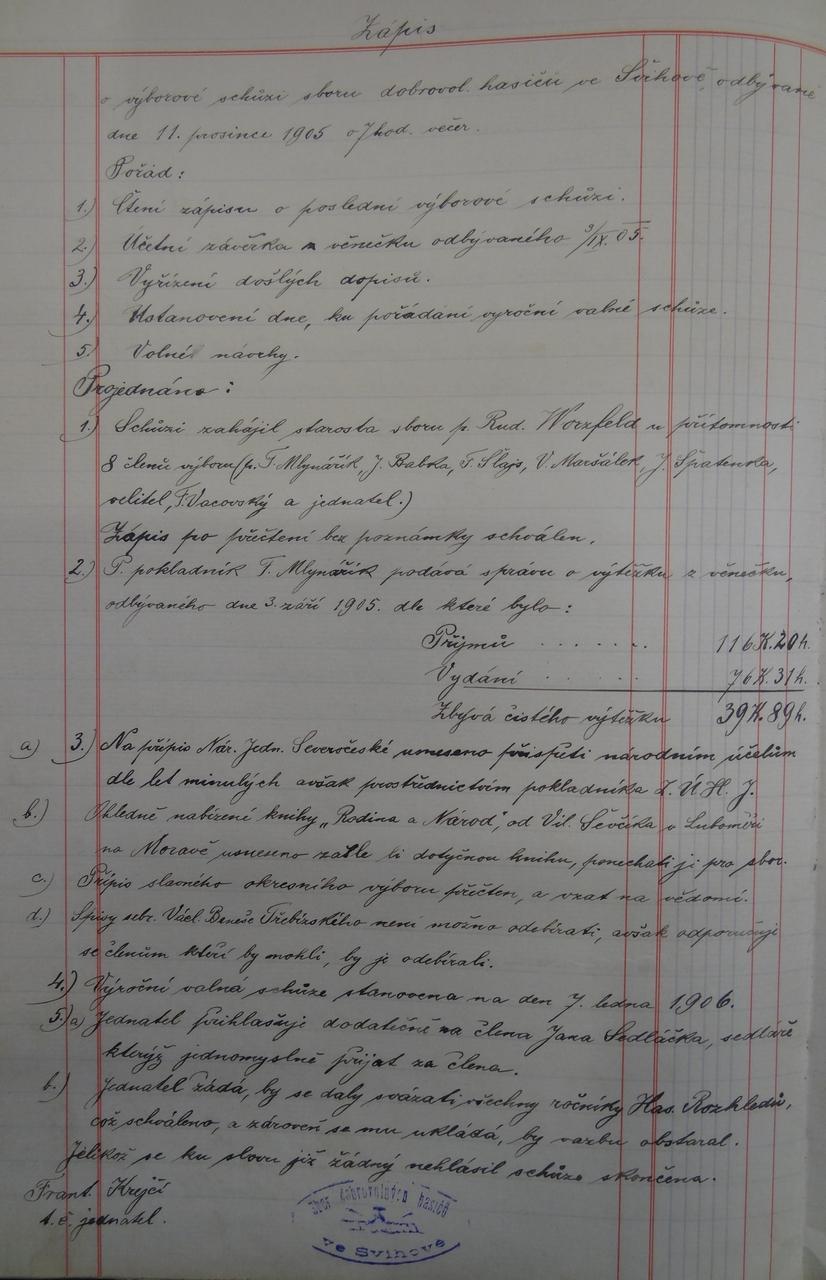 Zápis
o výborové schůzi sboru dobrovol. hasičů ve Švihově, odbývané
dne 11. prosince 1905 o 7 hod. večer.
Pořád:
1.) Čtení zápisu o poslední výborové schůzi.
2.) Účetní závěrka z věnečku odbývaného 3/IX. 05.
3.) Vyřízení došlých dopisů.
4.) Ustanovení dne, ku pořádání výroční valné schůze.
5.) Volné návrhy.
Projednáno:
1.) Schůzi zahájil starosta sboru p. Rud. Worzfeld u přítomnosti
8 členů výboru (p. F. Mlynářík, J. Babka, F. Slajs, V. Maršálek, J. Špatenka,
velitel, F. Vacovský a jednatel.)
Zápis po přečtení bez poznámky schválen.
2.) P. pokladník F. Mlynářík podává správu o výtěžku z věnečku,
odbývaného dne 3. září 1905. dle které bylo:
Příjmů . . . . . . . 116K.20h.
Vydání . . . . . . 76K.31h.
Zbývá čistého výtěžku 39K.89h.
a) 3.) Na přípis Nár. Jedn. Severočeské usneseno přispěti národním účelům
dle let minulých avšak prostřednictvím pokladníka Z. Ú. H. J.
b.) Ohledně nabízení knihy „Rodina a Národ", od Vil. Ševčíka v Luboměři
na Moravě usneseno zašle li dotyčnou knihu, ponechati ji pro sbor.
c.) Přípis slavného okresního výboru přečten, a vzat na vědomí.
d.) Spisy sebr. Václ. Beneše Třebízského není možno odebírati, avšak odporučuji
se členům kteří by mohli, by je odebírali.
4.) Výroční valná schůze stanovena na den 7. ledna 1906.
5.) a) Jednatel přihlašuje dodatečně za člena Jana Sedláčka, sedláře
kterýž jednomyslně přijat za člena.
b.) Jednatel žádá, by se daly svázati všechny ročníky Has. Rozhledů,
což schváleno, a zároveň se mu ukládá, by vazbu obstaral.
Jelikož se ku slovu již žádný nehlásil schůze skončena.
Frant. Krejčí
t. č. jednatel.
Sbor dobrovolných hasičů
ve Švihově